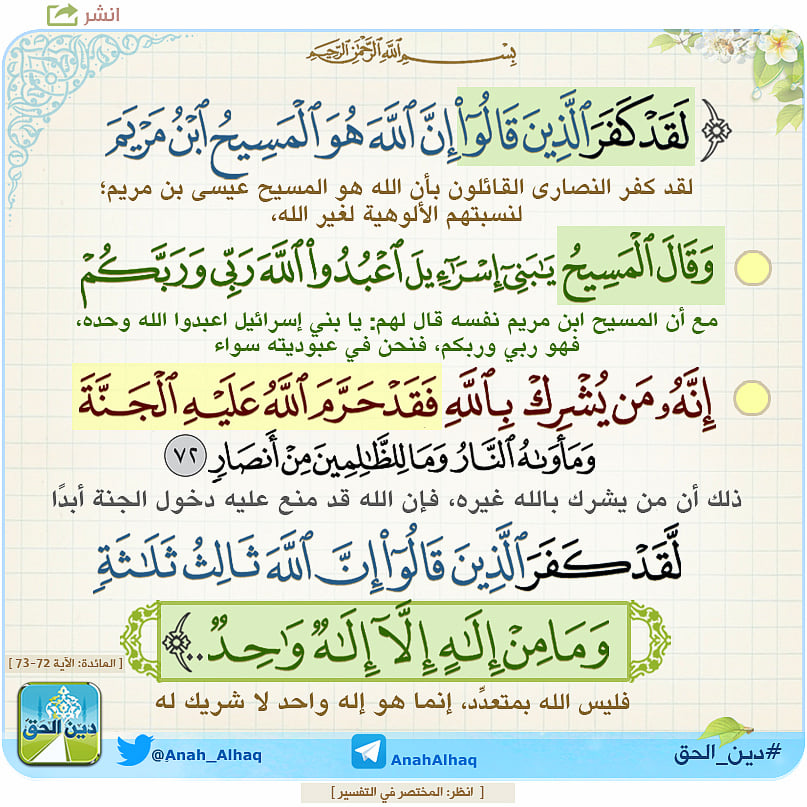 انشر
بِسْمِ اللَّهِ الرَّحْمَٰنِ الرَّحِيمِ
﴿لَقَدْ كَفَرَ ٱلَّذِينَ قَالُوٓا۟ إِنَّ ٱللَّهَ هُوَ ٱلْمَسِيحُ ٱبْنُ مَرْيَمَ
لقد كفر النصارى القائلون بأن الله هو المسيح عيسى بن مريم؛
لنسبتهم الألوهية لغير الله،
وَقَالَ ٱلْمَسِيحُ يَٰبَنِىٓ إِسْرَٰٓءِيلَ ٱعْبُدُوا۟ ٱللَّهَ رَبِّى وَرَبَّكُمْ
مع أن المسيح ابن مريم نفسه قال لهم: يا بني إسرائيل اعبدوا الله وحده،
فهو ربي وربكم، فنحن في عبوديته سواء
إِنَّهُۥ مَن يُشْرِكْ بِٱللَّهِ فَقَدْ حَرَّمَ ٱللَّهُ عَلَيْهِ ٱلْجَنَّةَ
وَمَأْوَىٰهُ ٱلنَّارُ وَمَا لِلظَّٰلِمِينَ مِنْ أَنصَارٍ ٧٢
ذلك أن من يشرك بالله غيره، فإن الله قد منع عليه دخول الجنة أبدًا
لَّقَدْ كَفَرَ ٱلَّذِينَ قَالُوٓا۟ إِنَّ ٱللَّهَ ثَالِثُ ثَلَٰثَةٍ
وَمَا مِنْ إِلَٰهٍ إِلَّآ إِلَٰهٌ وَٰحِدٌ..﴾
[ المائدة: الآية 72-73 ]
فليس الله بمتعدِّد، إنما هو إله واحد لا شريك له
دين الحق
@Anah_Alhaq
AnahAlhaq
#دين_الحق
[ انظر: المختصر في التفسير ]